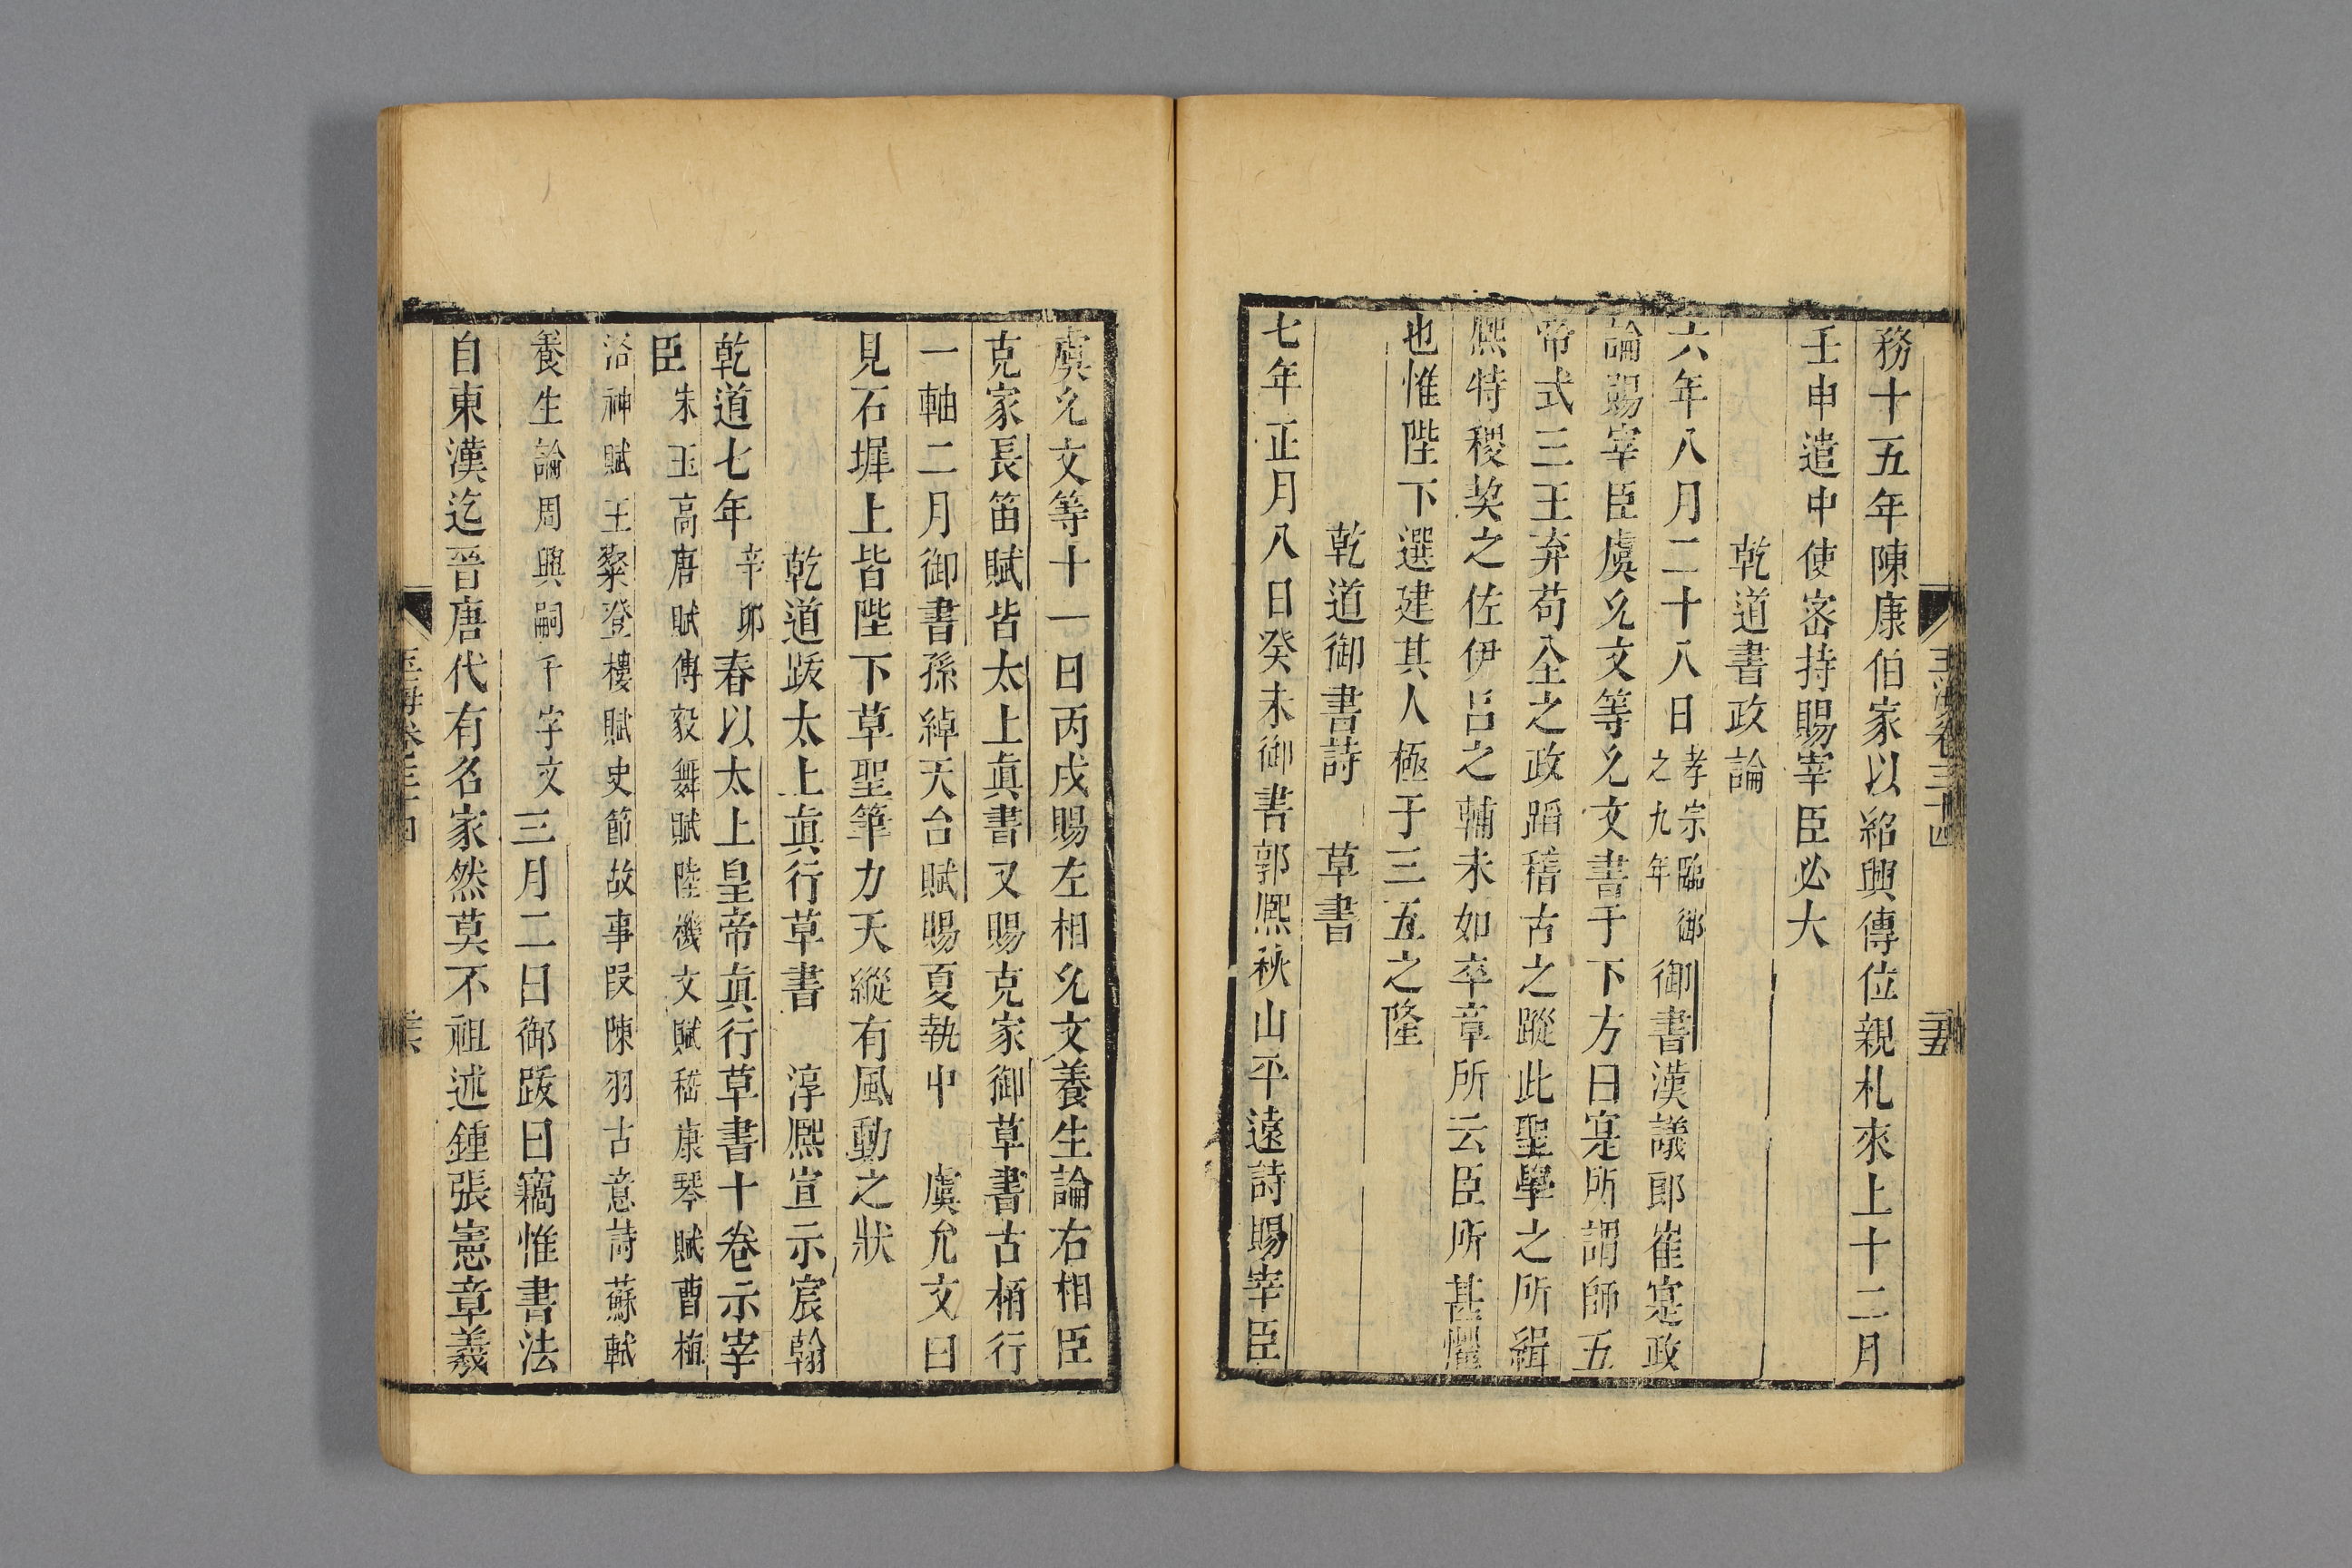 務十五年陳康伯家以紹興傳位親札來上十二月
壬申遣中使宻持賜宰臣必大
乾道書政論
六年八月二十八日孝宗臨御之九年御書漢議郎崔寔政
論賜宰臣虞允文等允文書于下方曰寔所謂師五
帝式三王弃苟全之政蹈稽古之蹤此聖學之所緝
熈特稷契之佐伊呂之輔未如卒章所云臣所甚懼
也惟陛下選建其人極于三五之隆
乾道御書詩 草書
七年正月八日癸未御書郭熈秋山平遠詩賜宰臣
虞允文等十一日丙戌賜左相允文養生論右相臣
克家長笛賦皆太上眞書又賜克家御草書古栢行
一軸二月御書孫綽天台賦賜夏執中 虞允文曰
見石墀上皆陛下草聖筆力天縱有風動之狀
乾道跋太上眞行草書 淳熈宣示宸翰
乾道七年辛卯春以太上皇帝眞行草書十卷示宰
臣朱玉高唐賦傅毅舞賦陸機文賦嵇康琴賦曹植
洛神賦王粲登樓賦史節故事叚陳羽古意詩蘇軾
養生論周興嗣千字文三月二日御跋曰竊惟書法
自東漢迄晉唐代有名家然莫不祖述鍾張憲章羲